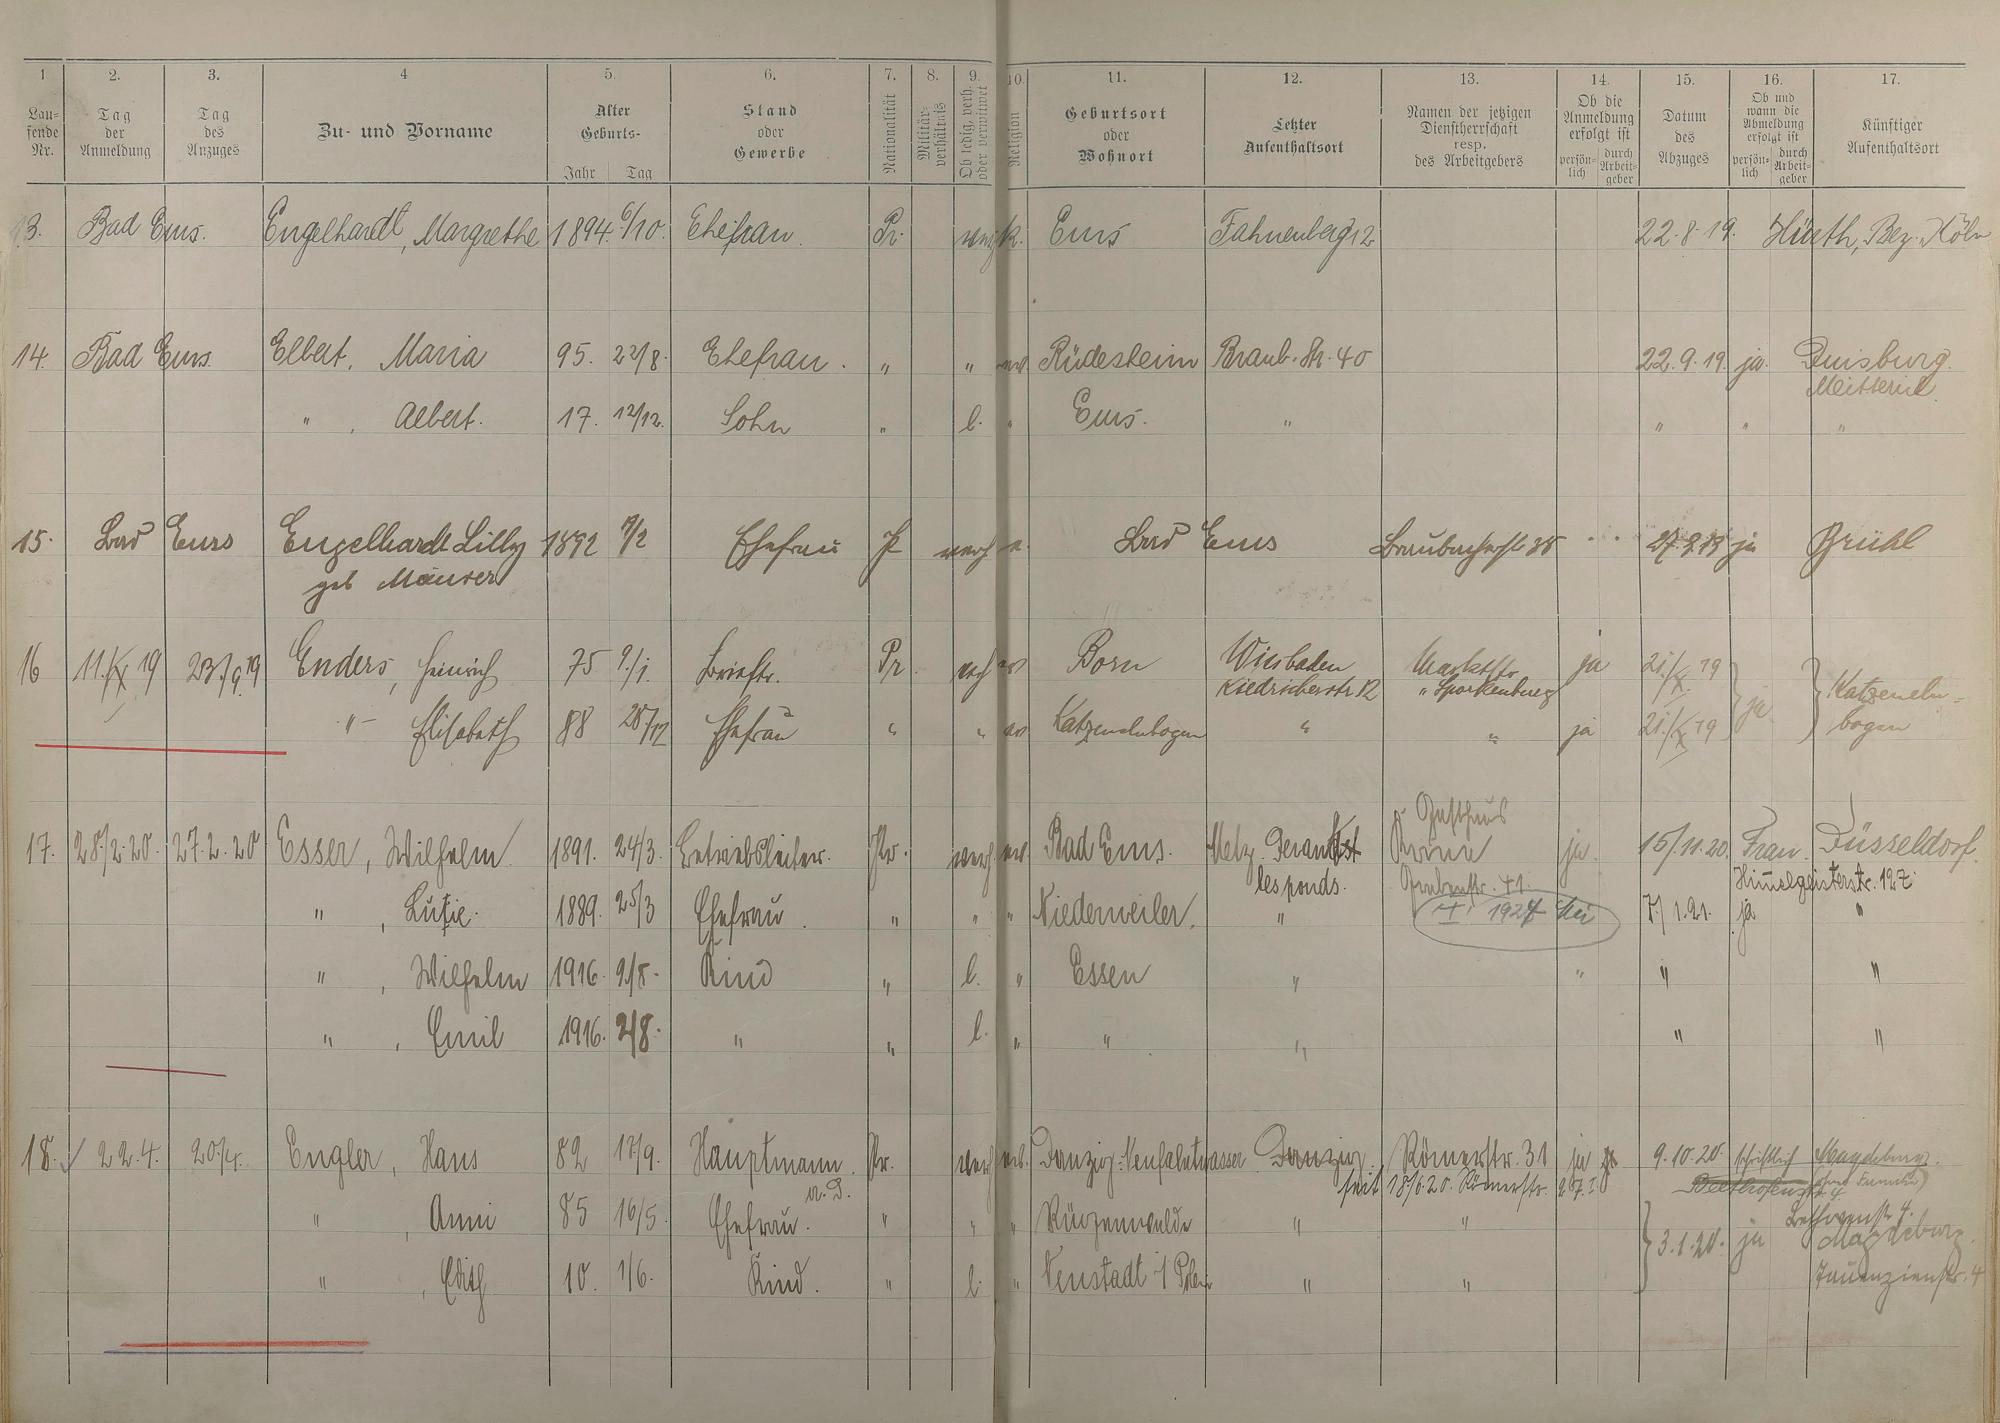 1 2. 3. 4 5. 6. 7. 8. 9. 10. 11. 12. 13. 14. 15. 16. 17.
Laufende Nr. Tag der Anmeldung Tag des Anzuges Zu- und Vorname Alter Geburts- Jahr Tag Stand oder Gewerbe Nationalität Militärverhältnis Ob ledig, verh. oder verwitwet Religion Geburtsort oder Wohnort Letzter Aufenthaltsort Namen der jetzigen Dienstherrschaft resp. des Arbeitgebers Ob die Anmeldung erfolgt ist persönlich durch Arbeitgeber Datum des Abzuges Ob und wann die Abmeldung erfolgt ist persönlich durch Arbeitgeber Künftiger Aufenthaltsort
13. Bad Ems. Engelhardt, Margrethe 1894. 6/10. Ehefrau. Pr. k. Ems Fahnenberg 12 22.8.19. Hürth, Bez. Köln
14. Bad Ems. Elbert, Maria 95. 22/8. Ehefrau. " " ev. Rüdesheim Braub. Str. 40 22.9.19. ja. Duisburg.
Meiderich.
" , Albert. 17. 12/12. Sohn " l. " Ems. " " " "
15. Bad Ems Engelhardt Lilly 1892 Ehefrau verh Bad Ems Braubacherstr 38 ja Brühl
geb Maurer
16 11./X 19 23./9. 19 Enders, Heinrich 75 9./1. Brieftr. Pr. verh ev Born Wiesbaden Marktstr ja 21./X. 19 ja Katzeneln-
Kiedricherstr 12 " Sporkenburg
-"- Elisabeth 88 28/12 Ehefrau " " ev Katzenelnbogen " " ja 21./X 19 bogen
Gasthaus
17. 28./2.20. 27.2.20 Esser, Wilhelm. 1891. 24/3. Betriebsleiter. Pr. verh. ev. Bad Ems. Metz. Krone ja. 15/.11.20. Frau. Düsseldorf.
les ponds. Grabenstr. 41. Himmelgeisterstr. 127.
" , Luzie. 1889. 25/3 Ehefrau. " " " Niederweiler. " 7./1.21. ja "
" , Wilhelm 1916. 9/8. Kind " l. " Essen " " " "
" , Emil 1916. 2/8. " " l. " " " " "
18. 22.4. 20./4. Engler, Hans 82 17/9. Hauptmann Pr. verh ev. Danzig-Neufahrwasser Danzig. Römerstr. 31 ja 9.10.20. schriftlich Magdeburg.
a.D. seit 18./6.20. Römerstr. Beethovenstr. 4
" , Anni 85 16/5. Ehefrau. " " " Rügenwalde " " Beethovenstr 4.
3.1.20. ja Magdeburg.
" , Edith 10. 1/6. Kind. " l. " Neustadt " " Tauenzienstr. 4